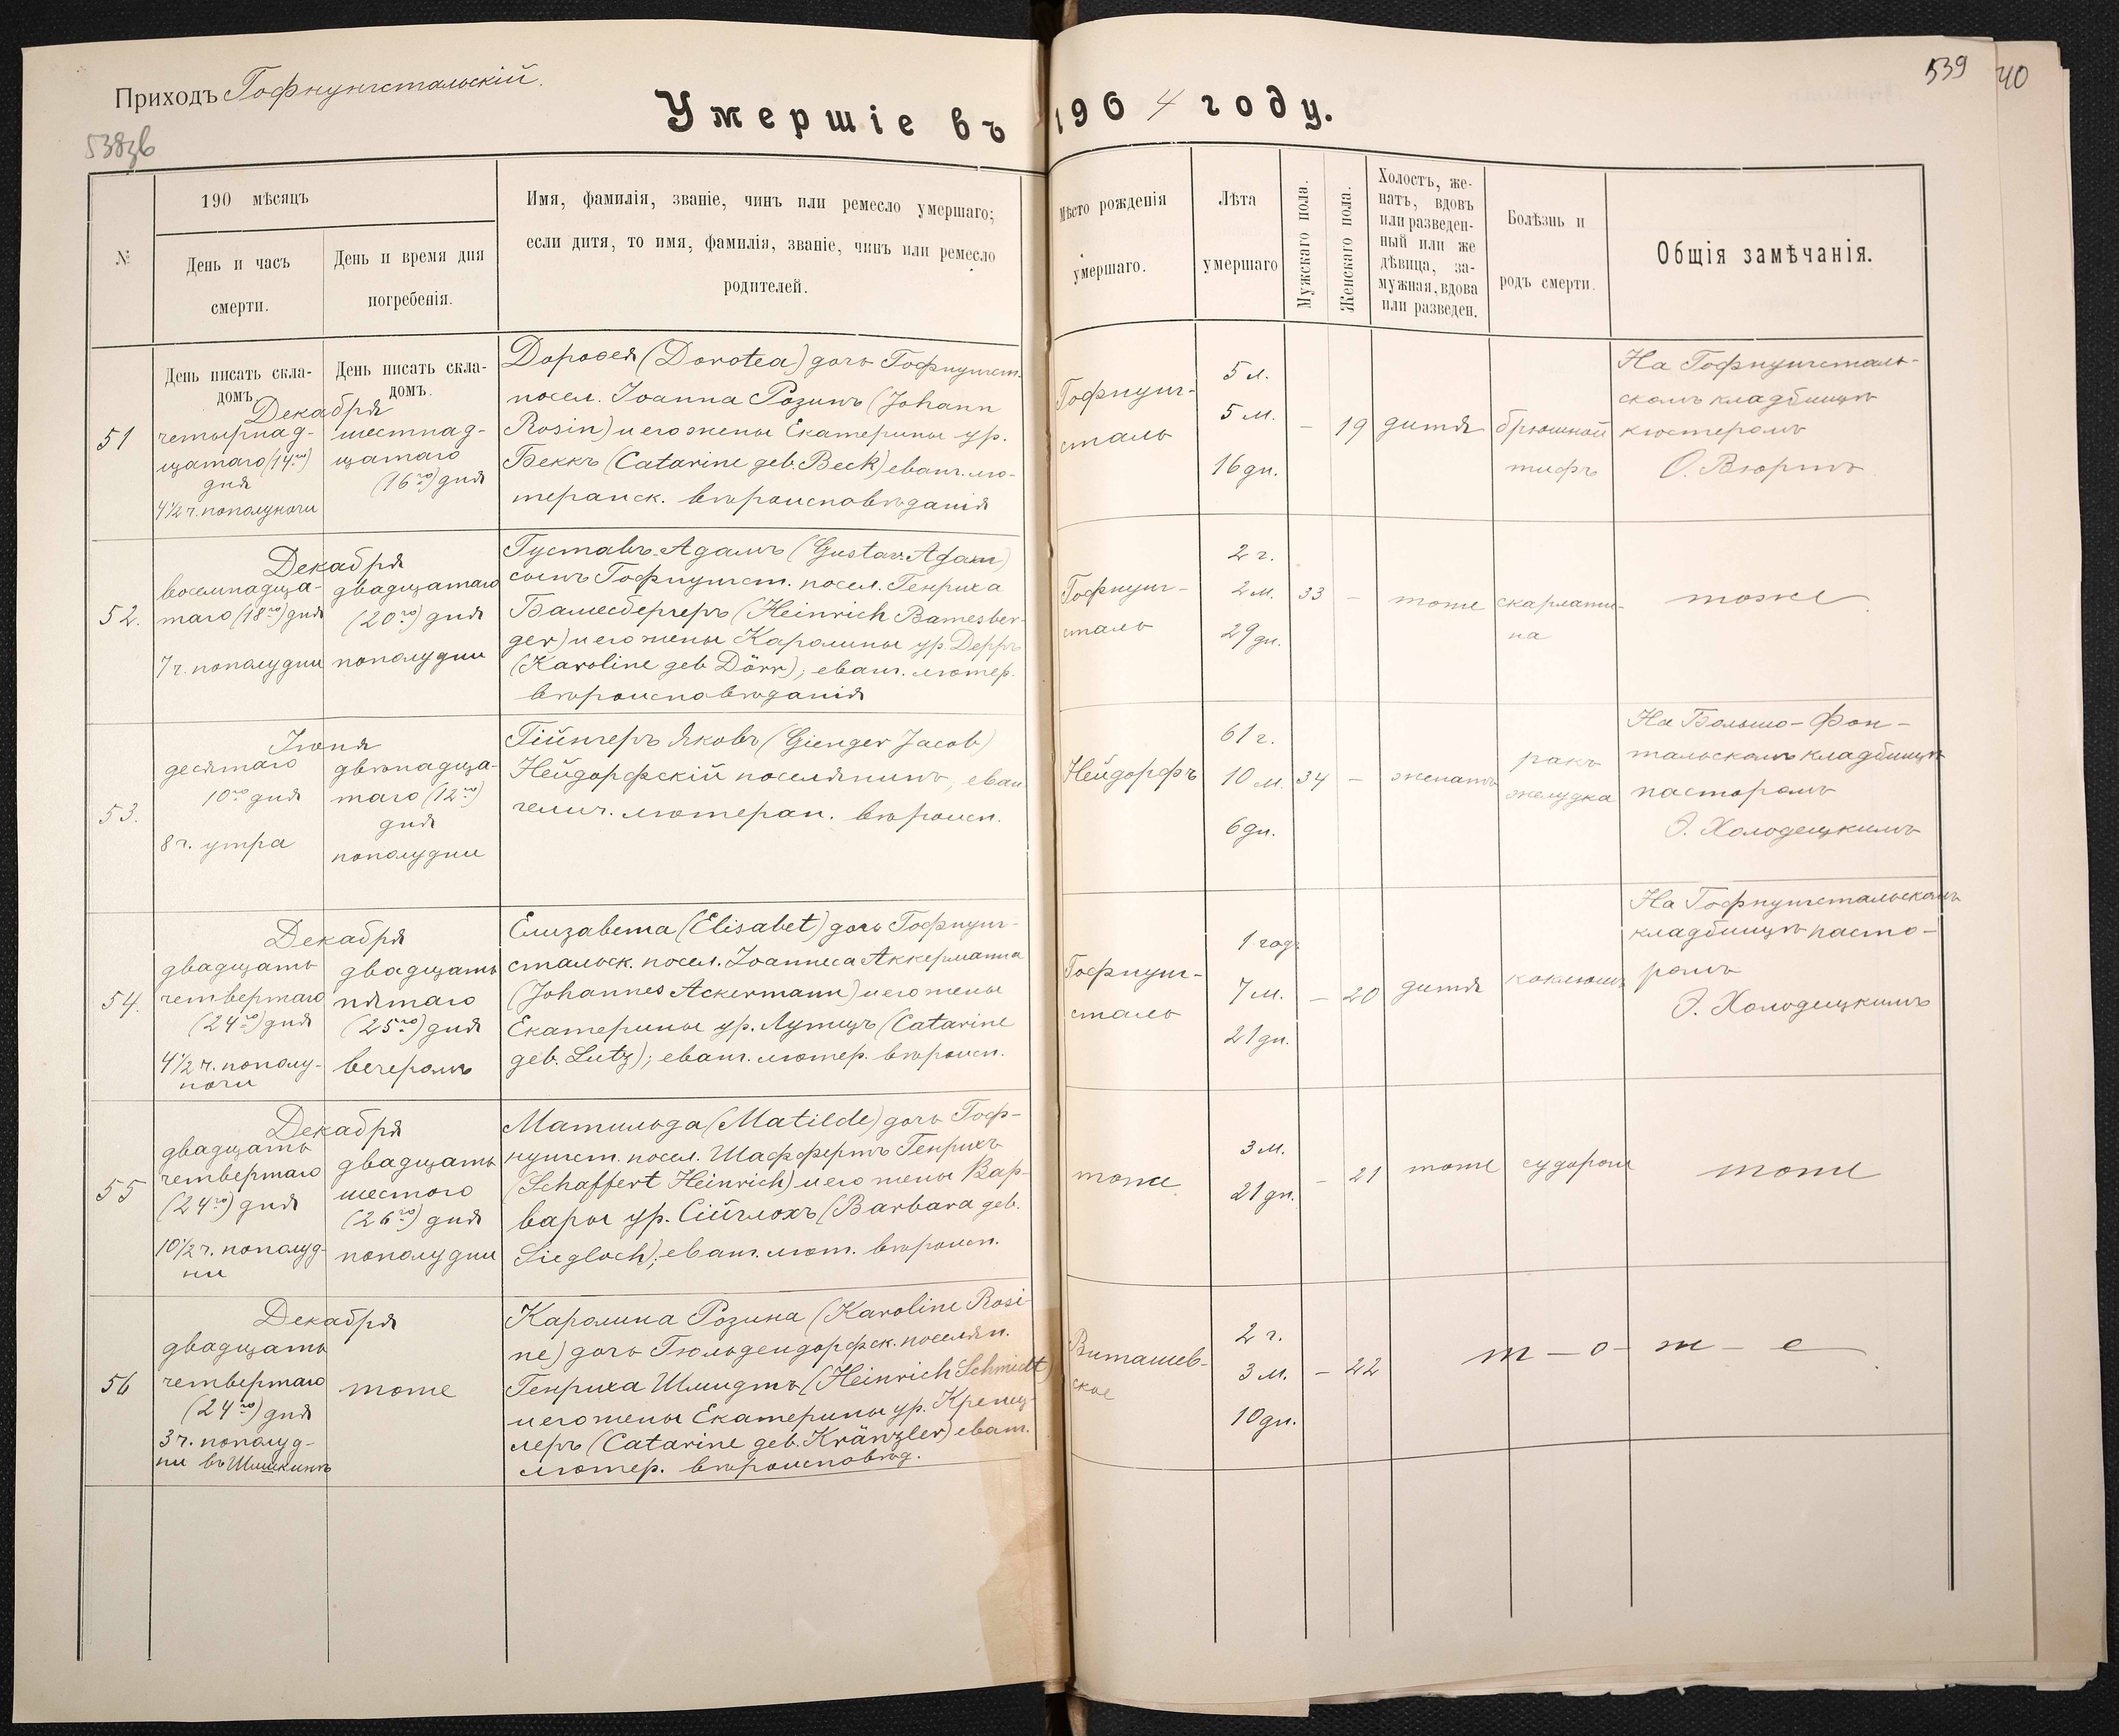 Приходъ Гофнунгстальскій.
538зв
539
40
Умершіе въ 1904 году.
№
190 мѣсяцъ
День и часъ
смерти.
День и время дня
погребенія.
Имя, фамилія, званіе, чинъ или ремесло умершаго;
если дитя, то имя, фамилія, званіе, чинъ или ремесло
родителей.
Мѣсто рожденія
умершаго.
Лѣта
умершаго
Мужскаго пола.
Женскаго пола.
Холостъ, же-
натъ, вдовъ
или разведен-
ный или же
дѣвица, за-
мужная, вдова
или разведен.
Болѣзнь и
родъ смерти.
Общія замѣчанія.
День писать скла-
домъ
День писать скла-
домъ.
51
Декабря
четырнад-
цатаго (14го)
дня
4½ ч. пополуночи
шестнад-
цатаго
(16го) дня
Доровея (Dorotea) дочь Гофнунгст.
посел. Іоанна Розинъ (Johann
Rosin) и его жены Екатерины ур.
Беккъ (Catarine geb. Beck) еванг. лю-
теранск. вѣроисповѣданія
Гофнунг-
сталь
5 л.
5 м.
16 дн.
–
19
дитя
брюшной
тифъ
На Гофнунгсталь-
скомъ кладбищѣ
кюстеромъ
О. Вюртъ.
52.
Декабря
восемнадца-
таго (18го) дня
7 ч. пополудни
двадцатаго
(20го) дня
пополудни
Густавъ-Адамъ (Gustav-Adam)
сынъ Гофнунгст. посел. Генриха
Бамесбергеръ (Heinrich Bamesber-
ger) и его жены Каролины ур. Дерръ
(Karoline geb Dörr); еванг. лютер.
вѣроисповѣданія
Гофнунг-
сталь
2 г.
2 м.
29 дн.
33
–
тоже
скарлати-
на
тоже
53.
Іюня
десятаго
10го дня
8 ч. утра
двѣнадца-
таго (12го)
дня
пополудни
Гійнгеръ Яковъ (Gienger Jacob)
Нейдорфскій поселянинъ, еван
гелич. лютеран. вѣроисп.
Нейдорфъ
61 г.
10 м.
6 дн.
34
–
женатъ
ракъ
желудка
На Больше-Фон-
тальскомъ кладбищѣ
пасторомъ
Э. Холодецкимъ
54.
Декабря
двадцать
четвертаго
(24го) дня
4½ ч. пополу-
ночи
двадцать
пятаго
(25го) дня
вечеромъ
Елизавета (Elisabet) дочь Гофнунг-
стальск. посел. Іоаннеса Аккерманна
(Johannes Ackermann) и его жены
Екатерины ур. Лутцъ (Catarine
geb. Lutz); еванг. лютер. вѣроисп.
Гофнунг-
сталь
1 годъ
7 м.
21 дн.
–
20
дитя
коклюшъ
На Гофнунгстальскомъ
кладбищѣ пасто-
ромъ
Э. Холодецкимъ
55
Декабря
двадцать
четвертаго
(24го) дня
10½ ч. пополуд-
ни
двадцать
шестого
(26го) дня
пополудни
Матильда (Matilde) дочь Гоф-
нунгст. посел. Шаффертъ Генрихъ
(Schaffert Heinrich) и его жены Вар-
вары ур. Сійглохъ (Barbara geb.
Siegloch); еванг. лют. вѣроисп.
тоже
3 м.
21 дн.
–
21
тоже
судороги
тоже
56
Декабря
двадцать
четвертаго
(24го) дня
3 ч. пополуд-
ни въ Шишкинѣ
тоже
Каролина Розина (Karoline Rosi-
ne) дочь Гюльдендорфск. поселян.
Генриха Шмидтъ (Heinrich Schmidt)
и его жены Екатерины ур. Кренц-
леръ (Catarine geb. Kränzler) еванг.
лютер. вѣроисповѣд.
Виташев-
ское
2 г.
3 м.
10 дн.
–
22
т – о – ж – е